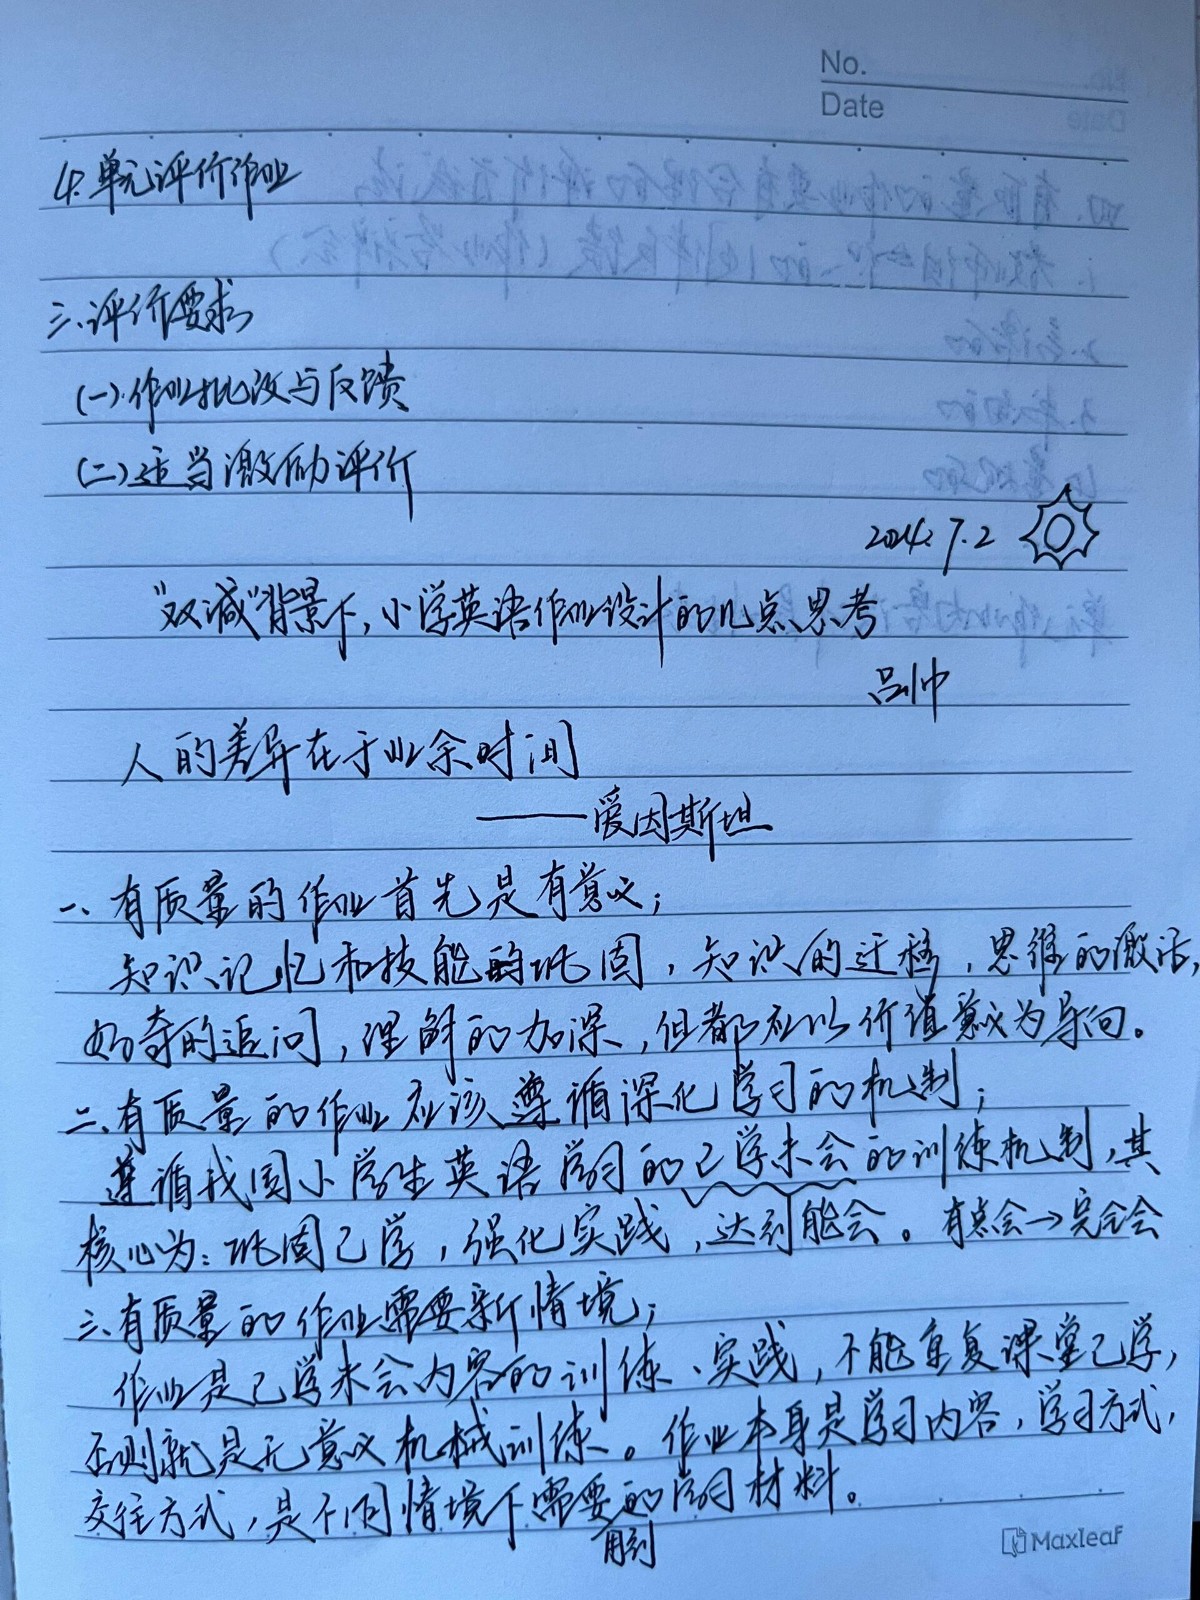 No.
Date
4. 单元评价作业
三、评价要求
(一).作业批改与反馈
(二)适当激励评价
2024.7.2
"双减"背景下,小学英语作业设计的几点思考
吕帅
人的差异在于业余时间
——爱因斯坦
一、有质量的作业首先是有意义;
知识记忆和技能的巩固,知识的迁移,思维的激活,
好奇的追问,理解的加深,但都应以价值意义为导向。
二、有质量的作业应该遵循深化学习的机制;
遵循我国小学生英语学习的已学未会的训练机制,其
核心为:巩固已学,强化实践,达到能会。有点会→完全会
三、有质量的作业需要新情境;
作业是已学未会内容的训练、实践,不能重复课堂已学,
否则就是无意义机械训练。作业本身是学习内容,学习方式,
交往方式,是不同情境下需要的学习材料。
用到
Maxleaf